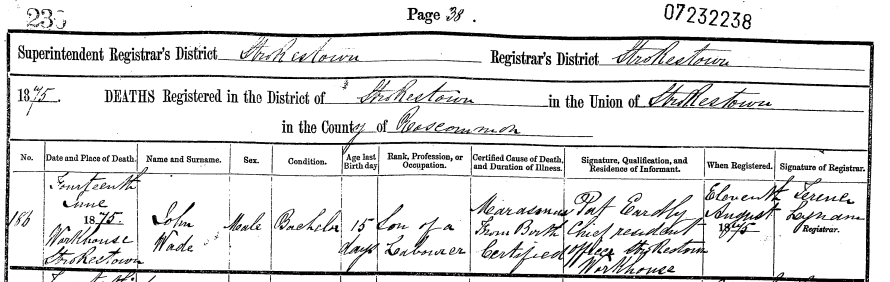 230
Page 38.
07232238
Superintendent Registrar's District Strokestown Registrar's District Strokestown
1875. DEATHS Registered in the District of Strokestown in the Union of Strokestown
in the County of Roscommon
No. Date and Place of Death. Name and Surname. Sex. Condition. Age last Birthday Rank, Profession, or Occupation. Certified Cause of Death, and Duration of Illness. Signature, Qualification, and Residence of Informant. When Registered. Signature of Registrar.
186
Fourteenth
June
1875.
Workhouse
Strokestown
John
Wade
Male
Bachelor
15
days
Son of a
Labourer
Marasmus
From Birth
Certified
Pat Eardly
Chief resident
officer Strokestown
Workhouse
Eleventh
August
1875
Terence
Lynam
Registrar.